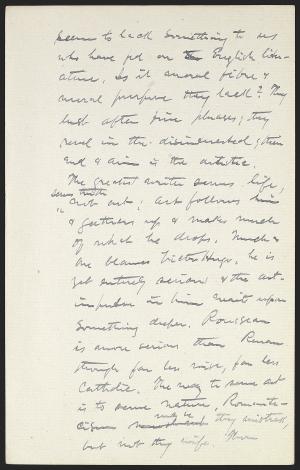 seem to lack something to us
who have fed on English liter-
ature. Is it moral fibre &
moral purpose they lack? They
lust after fine phrases; they
revel in the disinterested; their
end & aim is the artistic.
The greatest writer serves life,
serves truth
not art; art follows him
& gathers up & makes much
of what he drops. Much as
one blames Victor Hugo, he is
yet entirely serious & the art-
impulse in him waits upon
something deeper. Rousseau
is more serious than Renan
though far less wise, far less
Catholic. The way to serve art
is to serve nature,
may be thy mistress,
but not thy wife.